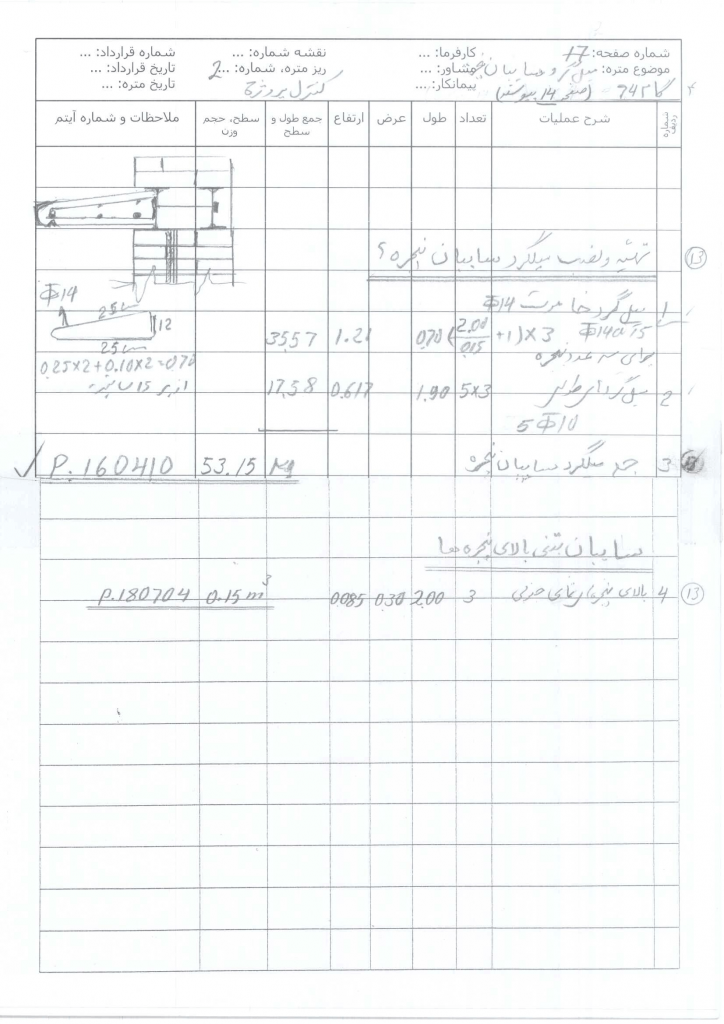 شماره صفحه: 17 کارفرما: ... نقشه شماره: ... شماره قرارداد: ...
موضوع متره: میلگرد سایبان مشاور: ... ریز متره، شماره: ...2 تاریخ قرارداد: ...
742 (صفحه 14 پیوست) پیمانکار: ... کنترل پروژه تاریخ متره: ...
شماره ردیف شرح عملیات تعداد طول عرض ارتفاع جمع طول و سطح سطح، حجم وزن ملاحظات و شماره آیتم
13 تهیه و نصب میلگرد سایبان پنجره؟
1 میل گرد Φ14
Φ14@15 (2.00/0.15 +1)×3 0.70 1.21 35.57
برای سه عدد پنجره
2 میل گردهای طولی 5×3 1.90 0.617 17.58
5Φ10
3 جمع میلگرد سایبان پنجره Kg 53.15 P.160410
Φ14
25
12
25
0.25×2+0.10×2=0.70
سایبان بتنی بالای پنجره ها
13 4 بالای پنجره 3 2.00 0.30 0.085 0.15 m³ P.180704